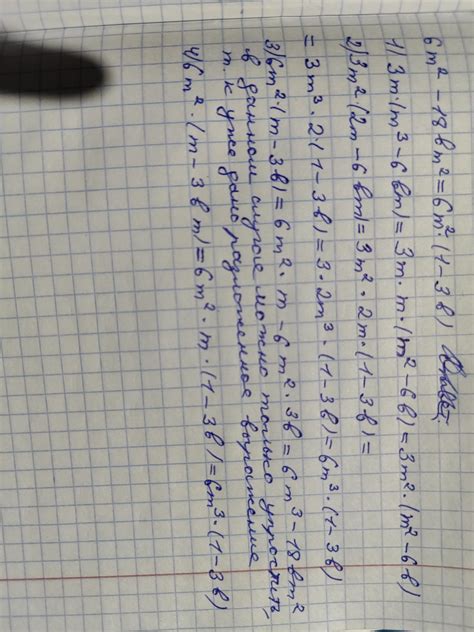 6m² - 18вm² = 6m²·(1-3в)
1) 3m·(m³-6вm) = 3m·m·(m²-6в) = 3m²·(m²-6в)
2) 3m²(2m-6вm) = 3m²·2m·(1-3в) =
= 3m³·2·(1-3в) = 3·2m³·(1-3в) = 6m³·(1-3в)
3) 6m²·(m-3в) = 6m²·m-6m²·3в = 6m³-18вm²
в данном случае можно только упростить,
т.к уже дано разложенное выражение
4) 6m²·(m-3вm) = 6m²·m·(1-3в) = 6m³·(1-3в)